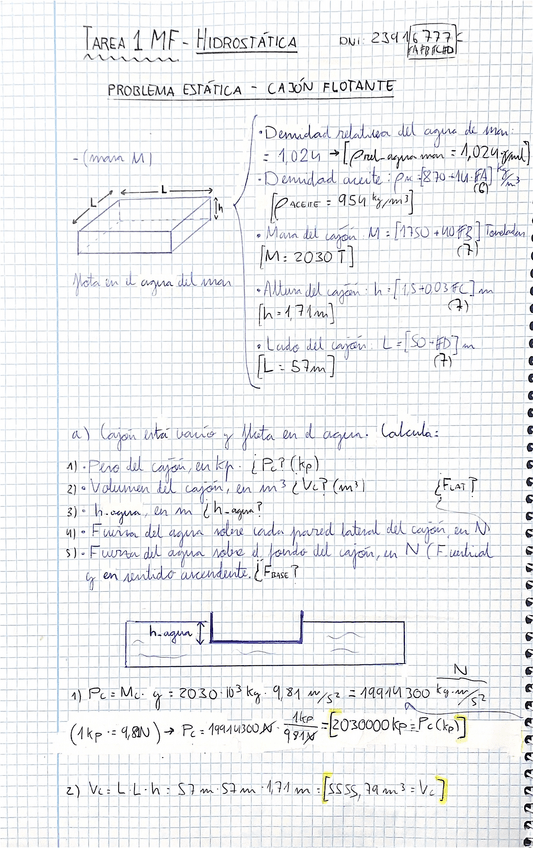 TAREA 1 MF - HIDROSTÁTICA
DNI: 23916777
FAFBFCFD
PROBLEMA ESTÁTICA - CAJÓN FLOTANTE
- (masa M)
L
L
h
flota en el agua del mar
• Densidad relativa del agua de mar:
= 1,024 → [ρrel-agua mar = 1,024 g/ml]
• Densidad aceite: ρac = [870+14·FA] kg/m³
(6)
[ρACEITE = 954 kg/m³]
• Masa del cajón: M = [1750 + 40 FB] Toneladas
(7)
[M = 2030 T]
• Altura del cajón: h = [1,5+0,03 FC] m
(7)
[h = 1,71 m]
• Lado del cajón: L = [50+FD] m
(7)
[L = 57m]
a) Cajón está vacío y flota en el agua. Calcula:
1) • Peso del cajón, en kp. ¿Pc? (kp)
2) • Volumen del cajón, en m³ ¿Vc? (m³)
¿FLAT?
3) • h-agua, en m ¿h-agua?
4) • Fuerza del agua sobre cada pared lateral del cajón, en N.
5) • Fuerza del agua sobre el fondo del cajón, en N (F. vertical
y en sentido ascendente. ¿FBASE?
h-agua
N
1) Pc = Mc · g = 2030·10³ kg · 9,81 m/s² = 19914300 kg·m/s²
(1kp = 9,81N) → Pc = 19914300 N · 1kp / 9,81N = [2030000 kp = Pc (kp)]
2) Vc = L·L·h = 57 m · 57 m · 1,71 m = [5555,79 m³ = Vc]